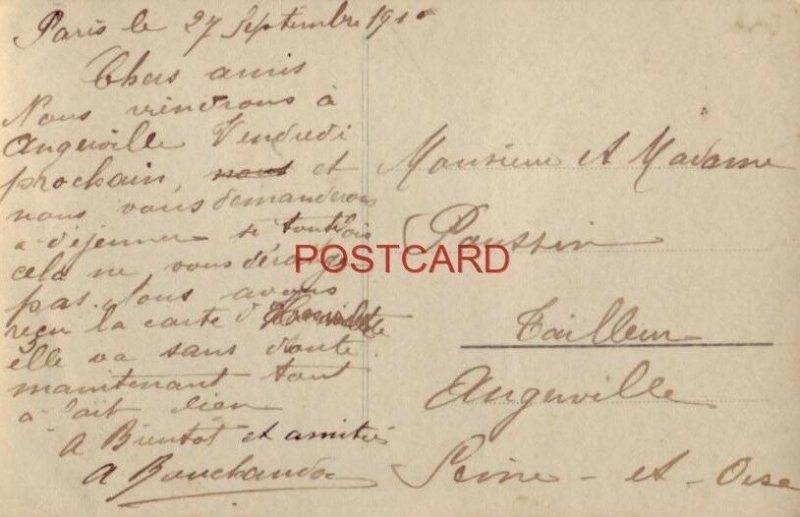 Paris le 27 Septembre 1910
Chers amis
Nous viendrons à
Angerville Vendredi
prochain, nous et
nous vous demanderons
a déjeuner si toutefois
cela ne vous dérange
pas. Nous avons
reçu la carte d'
elle va sans doute
maintenant tout
à fait bien
A Bientôt et amitiés
A Bouchaudon
Monsieur et Madame
Poussin
Tailleur
Angerville
Seine-et-Oise
POSTCARD